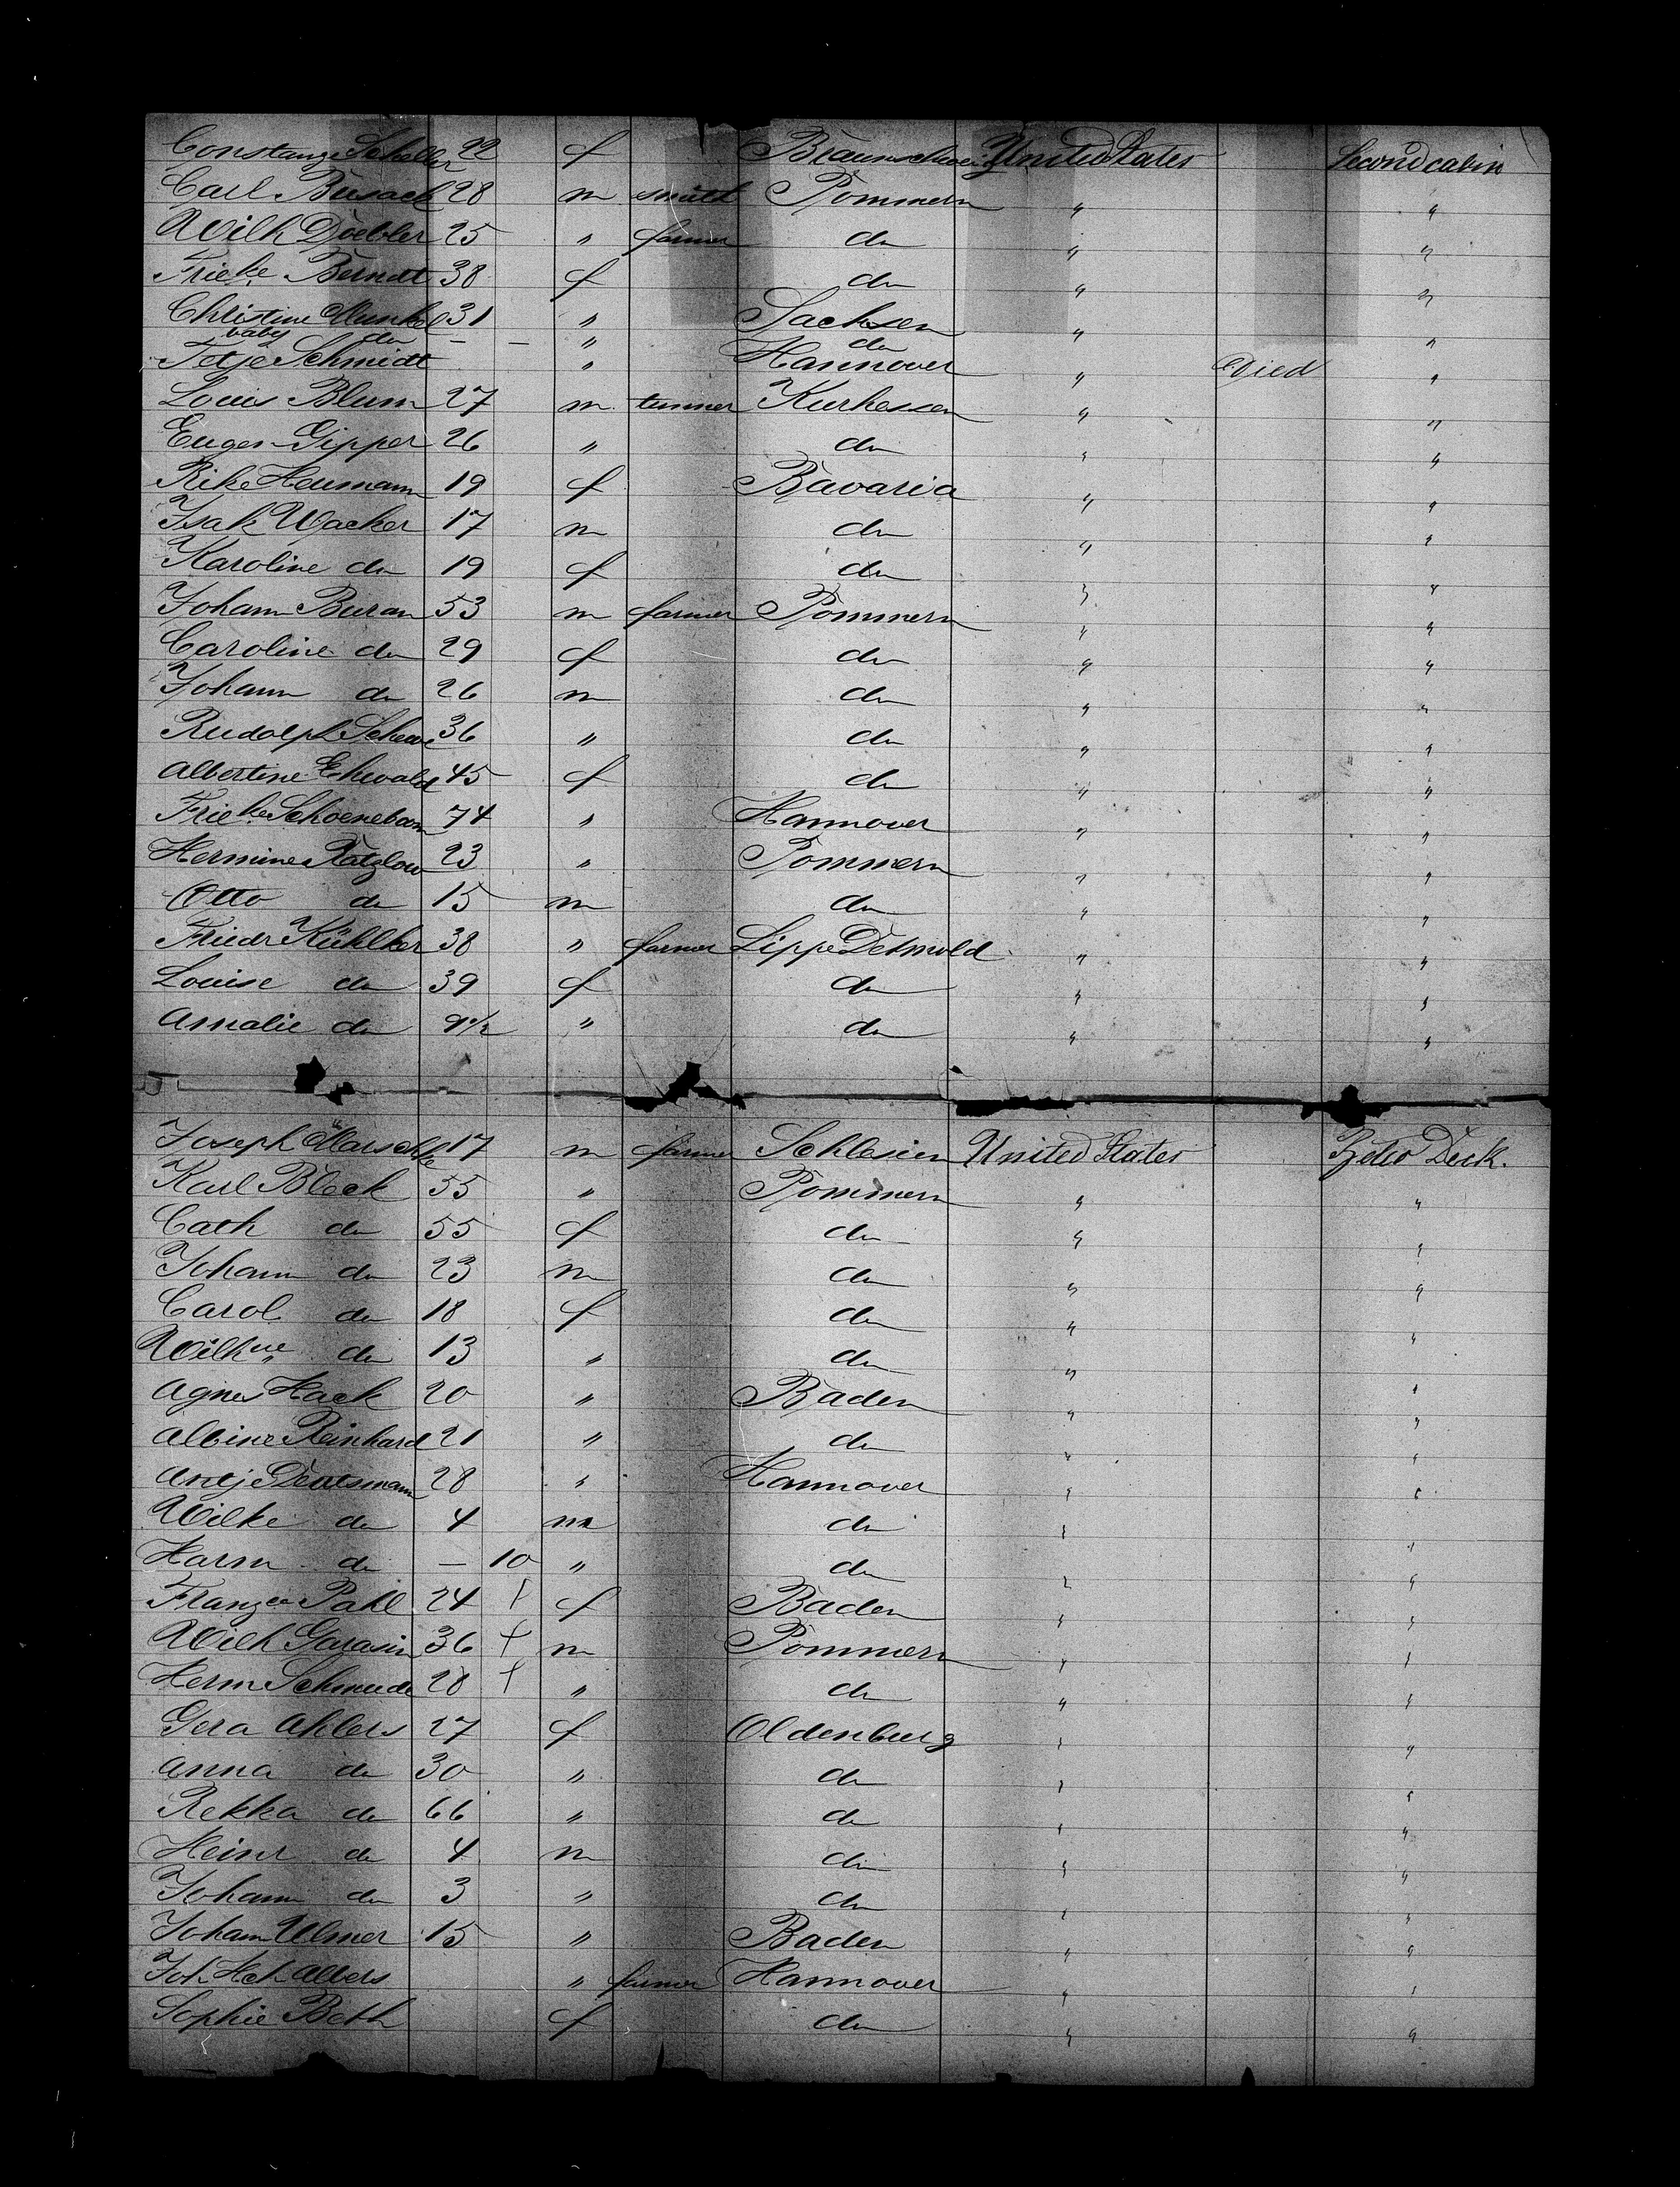 Constanze Scheller 22 f Braunschweig United States Second cabin
Carl Busack 28 m smith Pommern " "
Wilh Doebler 25 " farmer do " "
Frieke Berndt 38 f do " "
Christine Munkel 31 " Sachsen " "
baby do - - " do "
Tetje Schmidt " Hannover " Died "
Louis Blum 27 m tanner Kurhessen " "
Eugen Gipper 26 " do " "
Rike Heumann 19 f Bavaria " "
Isak Wacker 17 m do " "
Karoline do 19 f do " "
Johann Buran 53 m farmer Pommern " "
Caroline do 29 f do " "
Johann do 26 m do " "
Rudolph 36 " do " "
Albertine Ehwald 45 f do " "
Frieke Schoenebom 74 " Hannover " "
Hermine Ratzlow 23 " Pommern " "
Otto do 15 m do " "
Friedr Kühlker 38 " farmer Lippe Detmold " "
Louise do 39 f do " "
Amalie do 9 1/2 " do " "
Joseph 17 m farmer Schlesien United States Deck.
Karl Block 55 " Pommern " "
Cath do 55 f do " "
Johann do 23 m do " "
Carol do 18 f do " "
Wilhne do 13 " do " "
Agnes Hack 20 " Baden " "
Albine Reinhard 21 " do " "
Antje 28 " Hannover " "
Wilke do 4 m do " "
Harm do - 10 " do " "
Franzca Pahl 24 + f Baden " "
Wilh 36 + m Pommern " "
Herm Schmude 28 + " do " "
Gera Ahlers 27 f Oldenburg " "
Anna do 30 " do " "
Rekka do 66 " do " "
Heinr do 4 m do " "
Johann do 3 " do " "
Johann Ulmer 15 " Baden " "
Joh Hch Albers " farmer Hannover " "
Sophie Beth f do " "